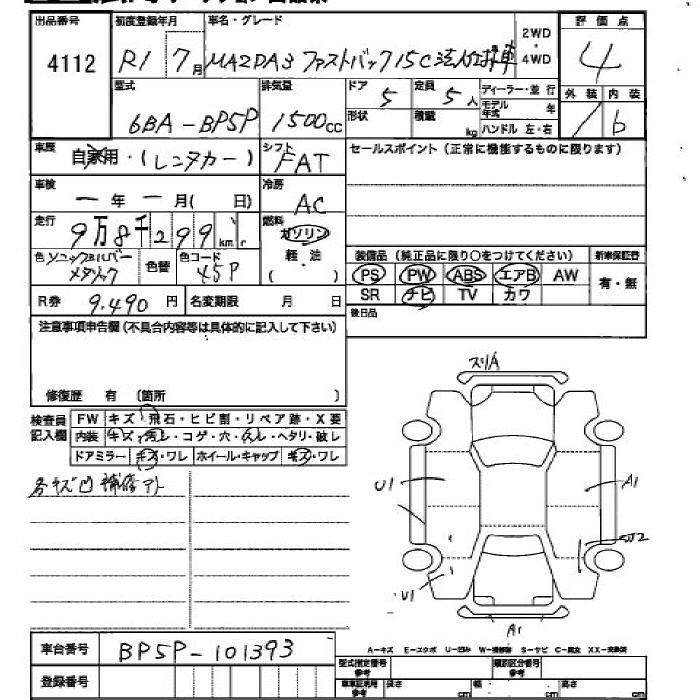 出品番号
4112
初度登録年月
R1 7月
車名・グレード
MAZDA3 ファストバック 15C
2WD
・
4WD
評価点
4
型式
6BA-BP5P
排気量
1500cc
ドア
5
形状
定員
5人
積載 kg
ディーラー・並行
モデル年式 年
ハンドル 左・右
外装 内装
b
車歴
自家用・(レンタカー)
シフト
FAT
セールスポイント(正常に機能するものに限ります)
車検
ー年ー月( 日)
冷房
AC
走行
9万8千299km
燃料
ガソリン
軽・油
( )
色 ソニックシルバー
メタリック
色替
色コード
45P
装備品(純正品に限り○をつけてください)
新車保証書
PS PW ABS エアB AW
有・無
SR ナビ TV カワ
R券 9.490円
名変期限 月 日
後日品
注意事項申告欄(不具合内容等は具体的に記入して下さい)
修復歴 有 〔箇所 〕
検査員
記入欄
FW キズ・飛石・ヒビ割・リペア跡・X要
内装 キズ・汚レ・コゲ・穴・スレ・ヘタリ・破レ
ドアミラー キズ・ワレ ホイール・キャップ キズ・ワレ
各キズ凹 補修アト
スリA
U1
A1
U1
A1
車台番号
BP5P-101393
登録番号
A-キズ E-エクボ U-凹み W-補修跡 S-サビ C-腐食 XX-交換済
型式指定番号
参考
類別区分番号
参考
長さ cm
幅 cm
高さ cm